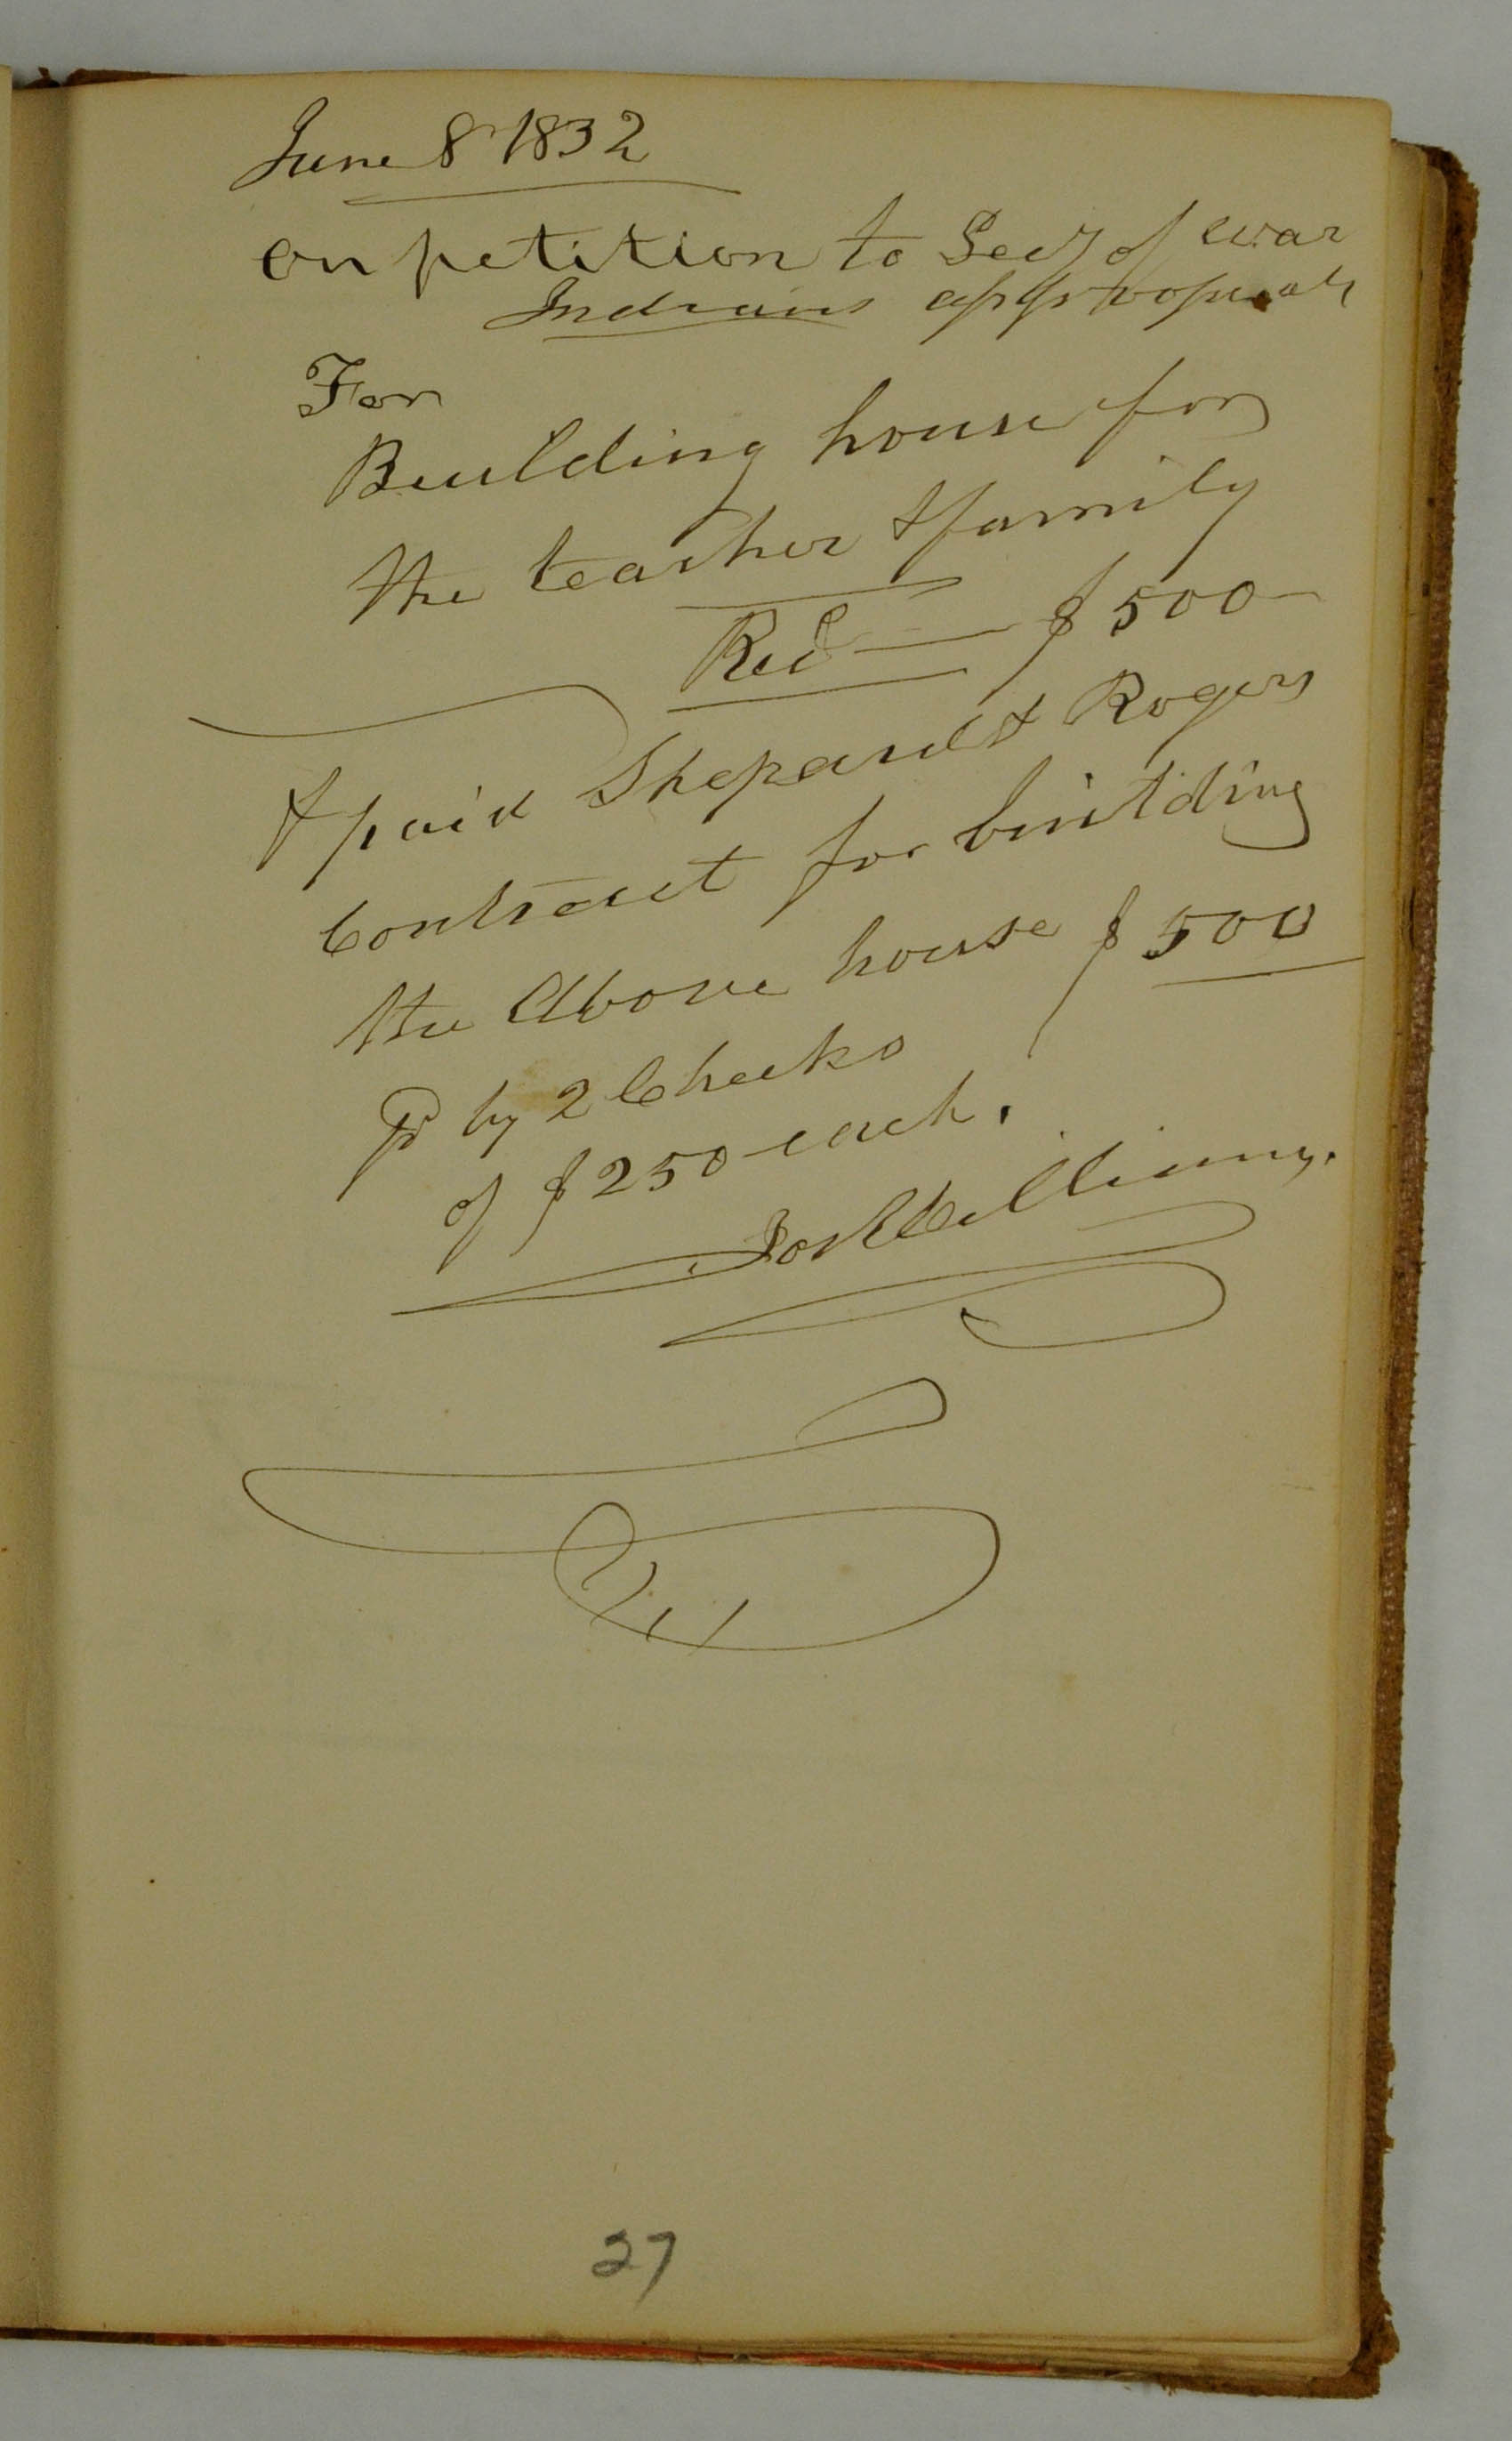 June 8 1832
on petition to Secy of war
Indians appropriat
For
Building house for
the teacher & family
Recd — $500
& paid Shepard & Rogers
Contract for building
the Above house $500
pd by 2 Checks
of $250 each.
Jos Williams.
27